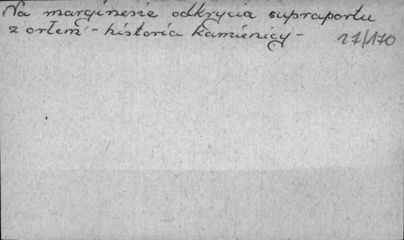 Na marginesie odkrycia supraportu
z orłem - historia kamienicy -
27/170